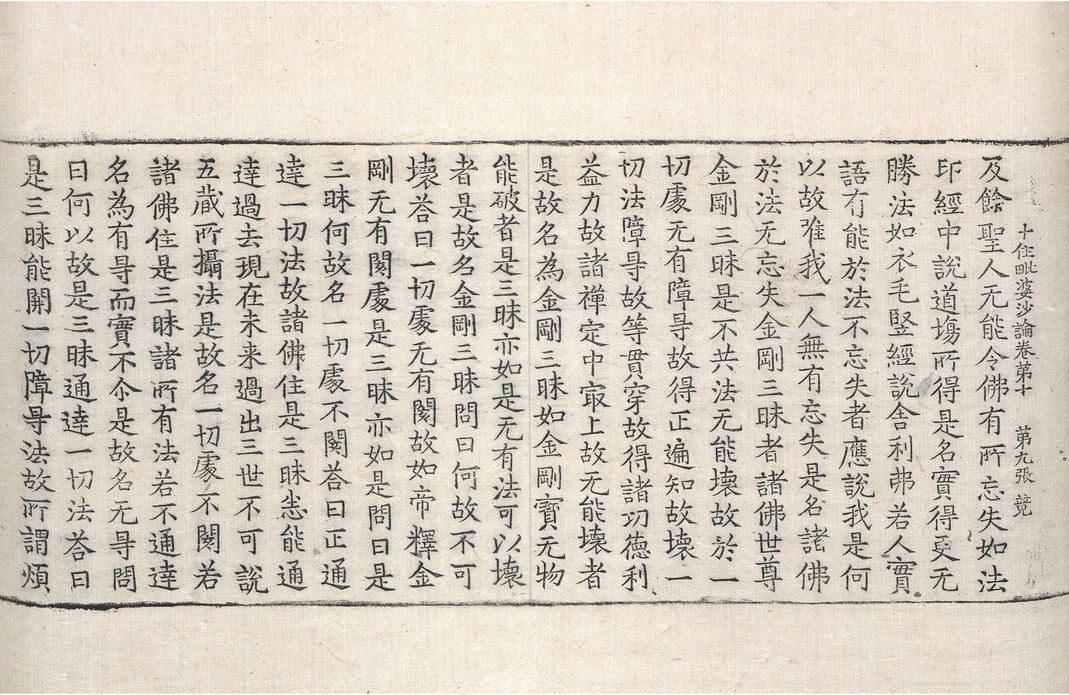 十住毗婆沙論卷第十 第九張 競
及餘聖人无能令佛有所忘失如法
印經中說道場所得是名實得更无
勝法如衣毛豎經說舍利弗若人實
語有能於法不忘失者應說我是何
以故唯我一人無有忘失是名諸佛
於法无忘失金剛三昧者諸佛世尊
金剛三昧是不共法无能壞故於一
切處无有障㝵故得正遍知故壞一
切法障㝵故等貫穿故得諸功德利
益力故諸禪定中㝡上故无能壞者
是故名為金剛三昧如金剛寶无物
能破者是三昧亦如是无有法可以壞
者是故名金剛三昧問曰何故不可
壞荅曰一切處无有閡故如帝釋金
剛无有閡處是三昧亦如是問曰是
三昧何故名一切處不閡荅曰正通
達一切法故諸佛住是三昧悉能通
達過去現在未来過出三世不可說
五蔵所攝法是故名一切處不閡若
諸佛住是三昧諸所有法若不通達
名為有㝵而實不尒是故名无㝵問
曰何以故是三昧通達一切法荅曰
是三昧能開一切障㝵法故所謂煩